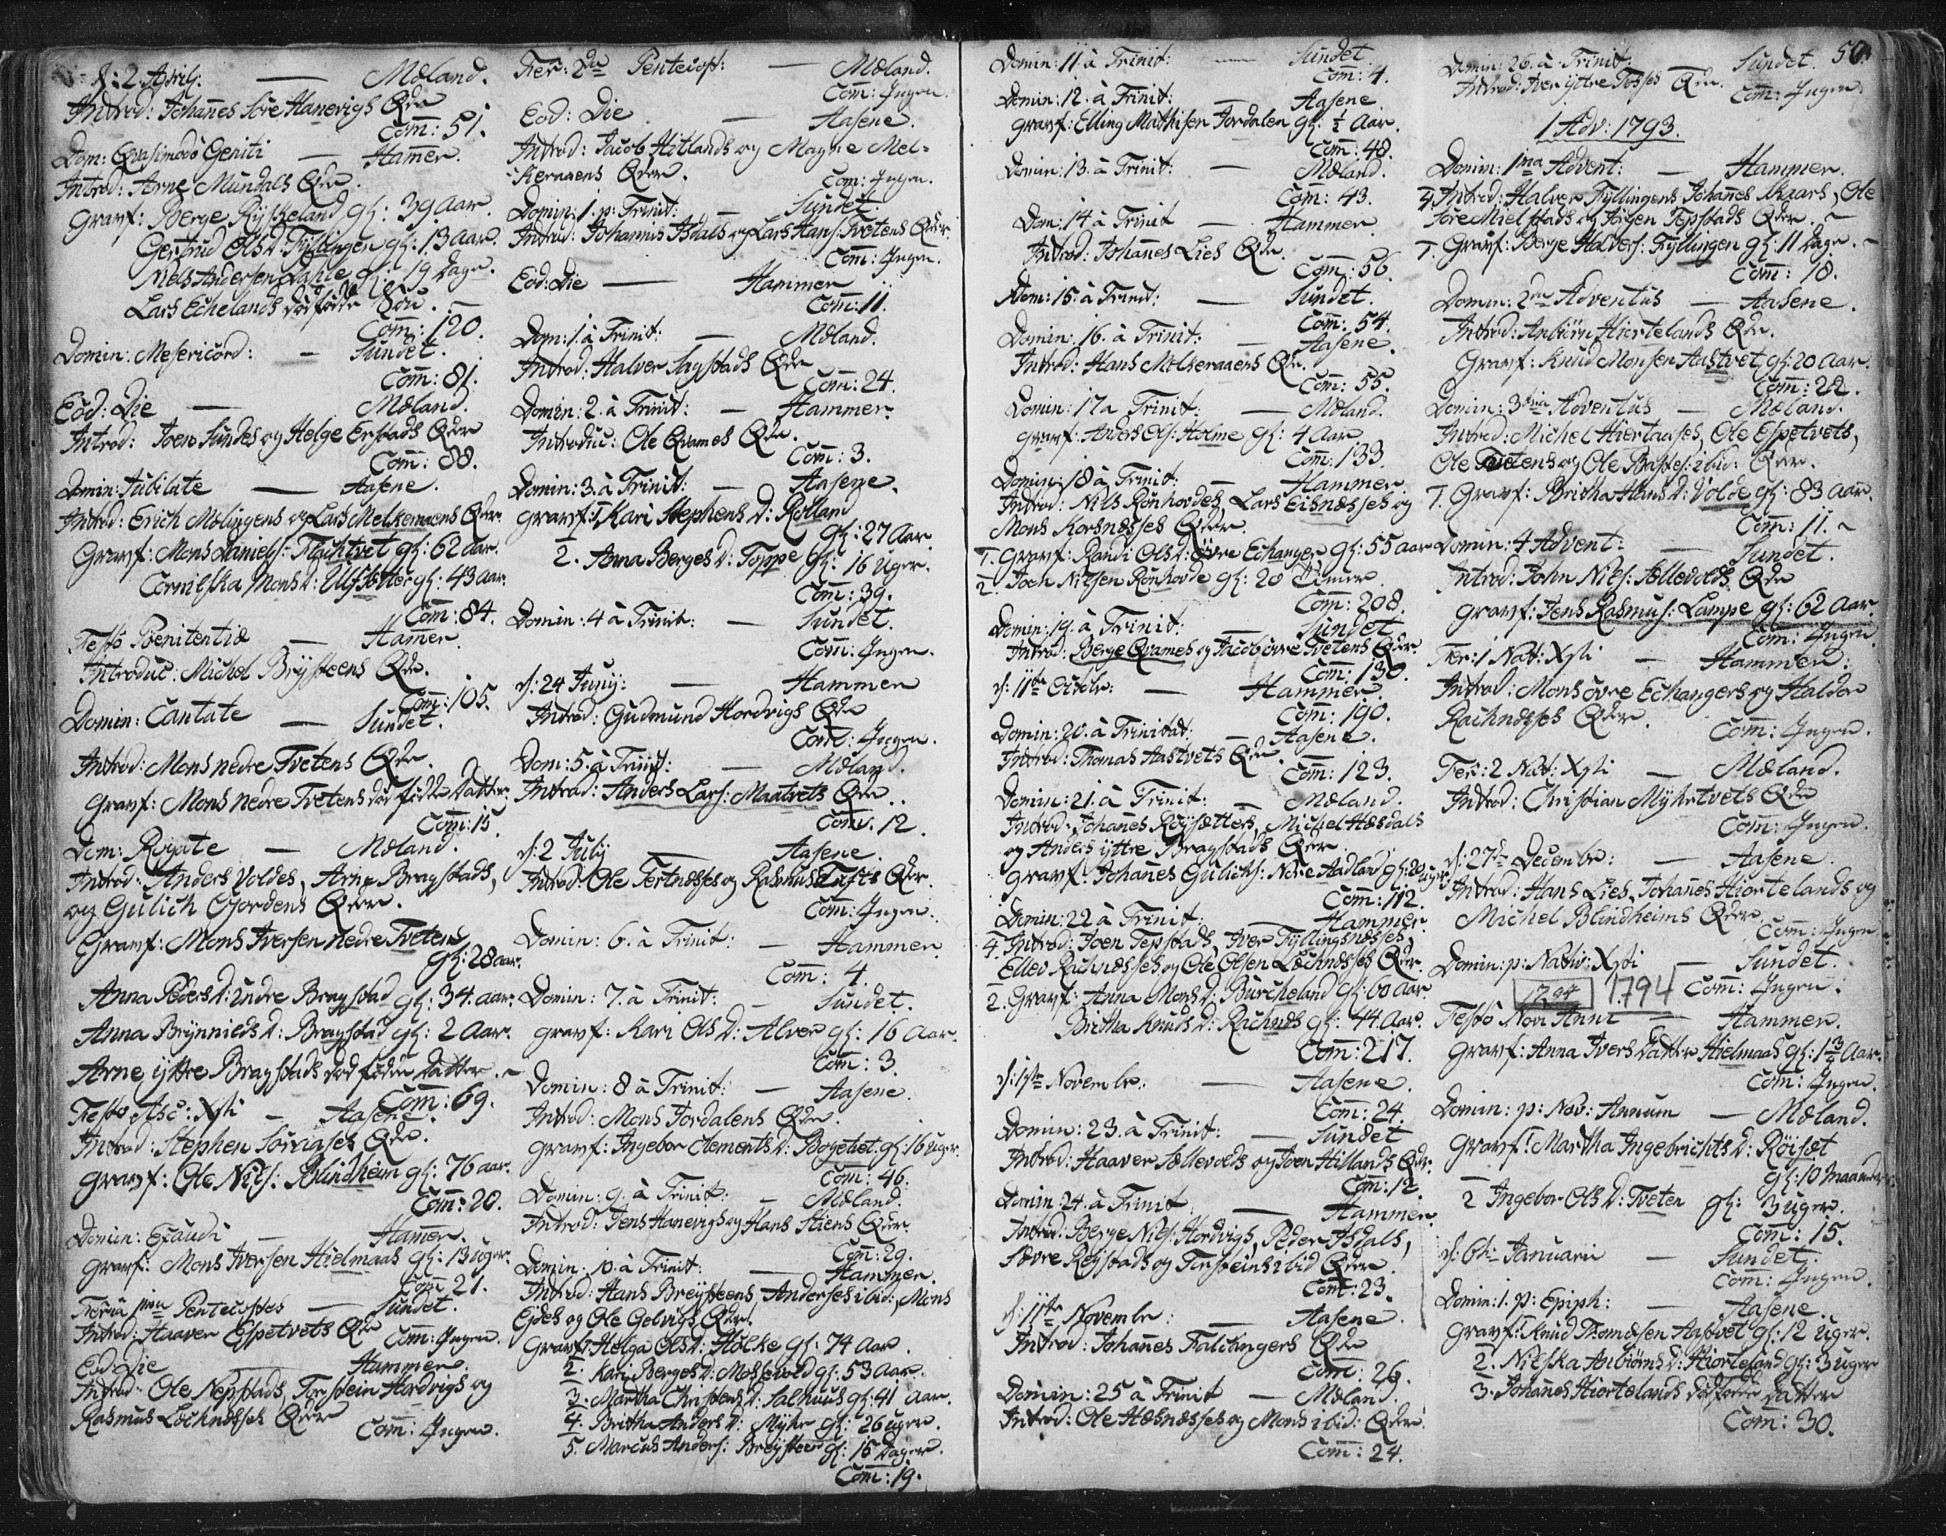 d: 2. Aprilj. — Mæland.
Introd: Johanes søre Hanevigs Qde
Com: 51.
Dom: Qvasimodo Geniti — Hamer.
Introd: Arne Mundals Qde.
Gravf: Berge Ryskeland gl: 39 aar.
Gertrud OlsD: Fyllingen gl: 13 aar.
Niels Andersen Dahle gl: 19 Dage.
Lars Echelands dødfødte
Com: 120.
Domin: Mesericord: — Sundet.
Com: 81.
Eod: Die — Mæland.
Introd: Joen Sundes og Helge Erstads Qder
Com: 88.
Domin: Jubilate — Aasene.
Introd: Erich Mølingens og Lars Melkeraaens Qder.
Gravf: Mons Daniels: Flachtvet gl: 62 aar.
Cornelska MonsD: Ulfsetter gl: 43 aar.
Com: 84.
Festo Poenitentiæ — Hamer.
Introduc: Michel Brysteens Qde.
Com: 105.
Domin: Cantate — Sundet.
Introd: Mons nedre Tvetens Qde.
Gravf: Mons nedre Tvetens død fødde Datter.
Com: 15.
Dom: Rogate — Mæland.
Introd: Anders Voldes, Arne Bragstads,
og Gulich Gjordens Qder.
Gravf: Mons Iversen nedre Tveten
gl: 28 aar.
Anna PedersD: Indre Bragstad gl: 34. aar.
Anna BrynnieldsD: Bragstad gl: 2 Aar.
Arne yttre Bragstads død fødde Datter.
Com: 69.
Festo Asc: Xsti — Aasene.
Introd: Stephen Sørviges Qde.
Gravf: Ole Niels: Blindheim gl: 76 aar.
Com: 20.
Domin: Exaudi — Hamer.
Gravf: Mons Iversen Hielmaas gl: 13 uger.
Com 21.
Feria 1ma Pentecostes — Sundet.
Introd: Haaver Espetvets Qde
Com: Ingen.
Eod: Die — Hammer.
Introd: Ole Nepstads, Torstein Hordvigs og
Rasmus Lochnesses Qder
Com: Ingen.
Fer: 2da Pentecost: — Mæland.
Com: Ingen.
Eod: Die — Aasene.
Introd: Jacob Hitlands og Magne Mel-
keraaens Qder.
Com: Ingen.
Domin: 1. p: Trinit: — Sundet.
Introd: Johannis Isdals og Lars Hans: Tvetens Qder.
Com: Ingen.
Eod: Die — Hammer
Com: 11.
Dom: 1. à Trinit: — Mæland.
Introd: Halver Sagstads Qde
Com: 24.
Domin: 2. à Trinit: — Hammer.
Introduc: Ole Qvames Qde.
Com: 3.
Domin: 3. à Trinit: — Aasene.
Gravf: 1 Kari StephensD: Rolland
gl: 27 Aar.
2. Anna BergesD: Toppe gl: 16 Uger.
Com: 39.
Domin: 4 à Trinit: — Sundet.
Com: Ingen.
d: 24 Junij: — Hammer
Introd: Gudmund Hordvigs Qde
Com: Ingen.
Dom: 5. à Trinit: — Mæland.
Introd: Anders Lars: Maatvets Qde.
Com: 12.
d: 2 Julij — Aasene.
Introd: Ole Tertnesses og Rasmus Tufts Qder.
Com: Ingen.
Domin: 6. à Trinit: — Hammer.
Com: 4.
Domin: 7. à Trinit: — Sundet.
Gravf: Kari OlsD: Alver gl: 16 Aar.
Com: 3.
Domin: 8 à Trinit: — Aasene.
Introd: Mons Jordalens Qde.
Gravf: Ingebor ClementsD: gl: 16 uger
Com: 46.
Domin: 9. à Trinit: — Mæland.
Introd: Jens Hanevigs og Hans Stiens Qder
Com: 29.
Domin: 10. à Trinit: — Hammer.
Introd: Hans Breysteens, Anderses ibid:, Mons
Eides og Ole Gelvigs Qder.
Gravf: 1 Helga OlsD: Holke gl: 74 Aar.
2. Kari BergesD: Mossevold gl: 53 Aar.
3. Martha ChristensD: Salhuus gl: 41 Aar.
4. Britha AndersD: Myhr gl: 26 uger.
5. Marcus Anders: Breysteen gl: 15 Dager.
Com: 19.
Domin: 11. à Trinit: — Sundet.
Com: 4.
Domin: 12. à Trinit: — Aasene.
Gravf: Elling Mathisen Jordalen gl: ½ Aar.
Com: 48.
Domin: 13. à Trinit: — Mæland.
Com: 43.
Dom: 14 à Trinit — Hammer.
Introd: Johanes Lies Qde.
Com: 56.
Dom: 15. à Trinit: — Sundet.
Com: 54.
Domin: 16. à Trinit: — Aasene.
Introd: Hans Melkeraaens Qde.
Com: 55.
Domin: 17 a Trinit: — Mæland.
Gravf: Anders Ols: Holme gl: 4 Aar
Com: 133.
Domin: 18 à Trinit: — Hammer
Introd: Nils Rønhovdes, Lars Eisnesses og
Mons Korsnesses Qder.
1. Gravf: Randi OlsD: øvre Echanger gl: 55 aar
2. Joen Nilsen Rønhovde gl: 20
Com: 208.
Domin: 19. à Trinit: — Sundet
Introd: Berge Qvames og Jacob øvre Tvetens Qder.
Com: 130.
d: 11te Octobr: — Hammer.
Com: 190.
Domin: 20. à Trinitat: — Aasene.
Introd: Thomas Aastvets Qde.
Com: 123.
Domin: 21. à Trinit: — Mæland.
Introd: Johanes Røysetters, Michel Hæsdals
og Anders yttre Bragstads Qder.
Gravf: Johanes Gulichs: Nore Aadland gl: 20 uger.
Com: 112.
Domin: 22 à Trinit: — Hammer.
4. Introd: Joen Tepstads, Iver Fyllingsnesses,
Ellev Rachnesses og Ole Olsen Lechnesses Qder.
2. Gravf: Anna MonsD: Burcheland gl: 60 Aar.
Birtha KnudsD: Rachnes gl: 44. Aar.
Com: 217.
d: 1ste Novembr: — Aasene.
Com: 24.
Domin: 23. à Trinit: — Sundet
Introd: Haaver Sællevolds og Joen Hillands Qder.
Com: 12.
Domin 24. à Trinit — Hammer.
Introd: Berge Niels: Hordvigs, Peder Isdals,
Røystads og Torsteins ibid Qder.
Com: 23.
d: 11te Novembr: — Aasene.
Introd: Johanes Faltangers Qde
Com: 26.
Domin: 25 à Trinit — Mæland.
Introd: Ole Hæsnesses og Mons ibid: Qder.
Com: 24.
50.
Domin: 26. à Trinit. Sundet.
Introd: Iver yttre Tosses Qde.
Com: Ingen
1 Adv: 1793.
Domin: 1ma Advent: — Hammer.
4 Introd: Halver Fyllingens, Johanes Skaars, Ole
søre Mielstads og Johsen Tepstads Qder.
1. Gravf: Berge Halvers: Fyllingen gl: 11 Dage.
Com: 18.
Domin: 2da Adventus — Aasene.
Introd: Anbiørn Hiortelands Qde.
Gravf: Knud Monsen Aastvet gl: 20 Aar.
Com: 22.
Domin: 3tia Adventus — Mæland.
Introd: Michel Hiertaases, Ole Espetvets,
Ole Tvetens og Ole Bastes: ibid: Qder.
1. Gravf: Britha HansD: Volde gl: 83 Aar.
Com: 11.
Domin: 4 Advent: — Sundet.
Introd: John Niels: Sællevolds Qde
Gravf: Jens Rasmus: Lampe gl: 62 Aar.
Com: Ingen
Fer: 1 Nat: Xsti — Hammer:
Introd: Mons øvre Echangers og Haldor
Rachnesses Qder.
Com: Ingen.
Fer: 2 Nat: Xsti — Mæland.
Introd: Christian Myhrtvets Qde
Com: Ingen.
d: 27de Decembr: — Aasene.
Introd: Hans Lies, Johanes Hiortelands og
Michel Blindheims Qder
Com: Ingen
Domin: p: Nativ: Xsti — Sundet.
Com: Ingen.
1794 1794
Festo Novi Anni — Hammer.
Gravf: Anna Ivers Datter Hielmaas gl: 1¾ Aar.
Com: Ingen.
Domin: p: Nov: Annum — Mæland.
Gravf: 1 Martha IngebrichtsD: Røiset
gl: 10 Maaneder
2 Ingebor OlsD: Tveten gl: 3 uger.
Com: 15.
d: 6te Januarii — Sundet.
Com: Ingen.
Domin: 1. p: Epiph: — Aasene.
Gravf: 1 Knud Thomesen Aastvet gl: 12 Uger.
2. Nielska AnbiørnsD: Hiorteland gl: 3 uger
3. Johanes Hiortelands dødfødde Datter
Com: 30.